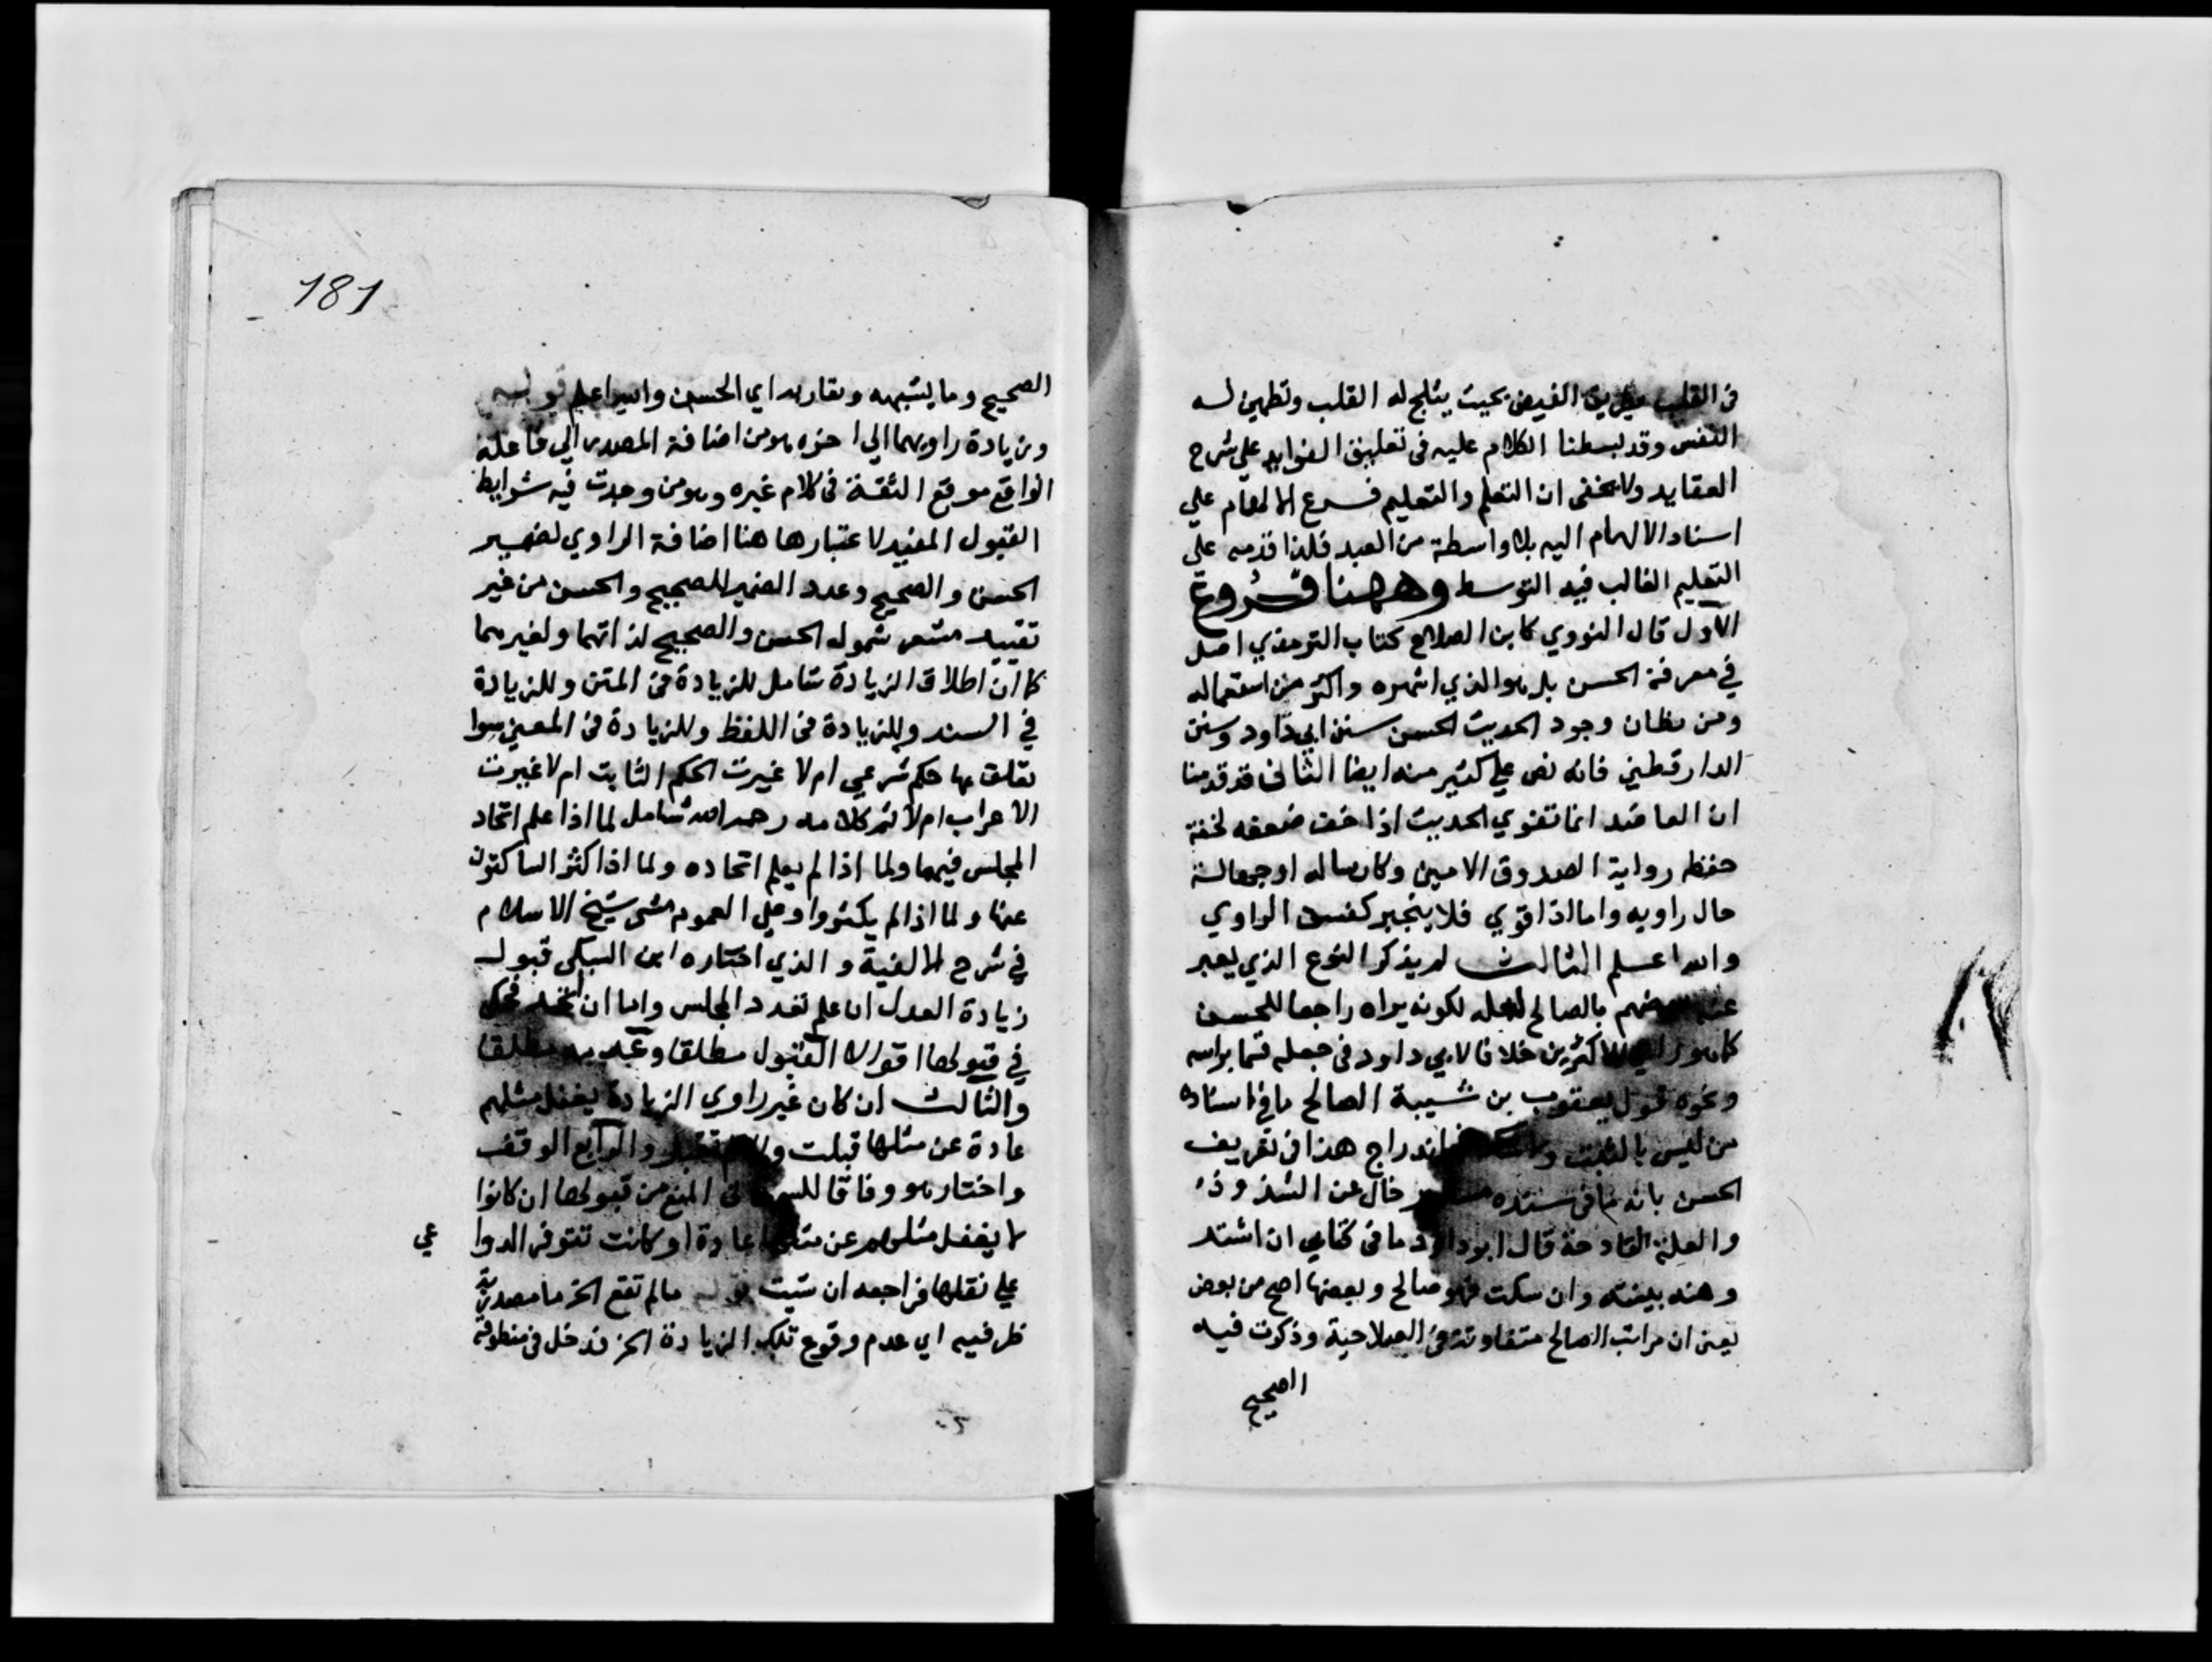 في القلب بطريق الفيض بحيث يثلج له القلب وتطمين له
النفس وقد بسطنا الكلام عليه في تعليق الفوايد علي شرح
العقايد ولا يخفي ان التعلم والتعليم فرع الالهام علي
اسناد الالهام اليه بلا واسطة من العبد فلذا قدمه علي
التعليم الغالب فيه التوسط وههنا فروع
الاول قال النووي كابن الصلاح كتاب الترمذي اصل
في معرفة الحسن بل هو الذي اشهره واكثر من استعماله
ومن مظان وجود الحديث الحسن سنن ابي داود وسنن
الدارقطني فانه نص علي كثير منه ايضا الثاني قد قدمنا
ان العاضد انما تقوي الحديث اذا خف ضعفه لخفة
حفظ رواية الصدوق الامين وكارساله او جهالة
حال راويه واما اذا قوي فلا ينجبر كفسق الراوي
والله اعلم الثالث لم يذكر النوع الذي يعبر
عنه بعضهم بالصالح لعله لكونه يراه راجعا للحسن
كما هو راي الاكثرين خلافا لابي داود في جعله قسما براسه
ونحوه قول يعقوب بن شيبة الصالح ما في اسناده
من ليس بالثبت اندراج هذا في تعريف
الحسن بانه ما في سنده خال عن الشذوذ
والعلة القادحة قال ابو داود ما في كتابي ان اشتد
وهنه بينته وان سكت فهو صالح وبعضها اصح من بعض
يعني ان مراتب الصالح متفاوتة في الصلاحية وذكرت فيه
الصحيح
181
الصحيح وما يشبهه ويقاربه اي الحسن والله اعلم قوله
وزيادة راويهما الي اخره هو من اضافة المصدر الي فاعله
الواقع موقع الثقة في كلام غيره وهو من وجدت فيه شرايط
القبول المفيد لاعتبارها هنا اضافة الراوي لضمير
الحسن والصحيح وعدد الضمير للصحيح والحسن من غير
تقييد مشعر شموله الحسن والصحيح لذاتهما ولغيرهما
كما ان اطلاق الزيادة شامل للزيادة في المتن وللزيادة
في السند وللزيادة في اللفظ وللزيادة في المعني سوا
تعلق بها حكم شرعي ام لا غيرت الحكم الثابت ام لا غيرت
الاعراب ام لا ثم كلامه رحمه الله شامل لما اذا علم اتحاد
المجلس فيهما ولما اذا لم يعلم اتحاده ولما اذا كثر الساكتون
عنها ولما اذا لم يكثروا وعلي العموم مشي شيخ الاسلام
في شرح الالفية والذي اختاره ابن السبكي قبول
زيادة العدل ان علم تعدد المجلس واما ان اتحد فحكي
في قبولها اقوالا القبول مطلقا وعدمه مطلقا
والثالث ان كان غير راوي الزيادة يغفل مثلهم
عادة عن مثلها قبلت والا لم تقبل والرابع الوقف
واختار هو وفاقا في المنع من قبولها ان كانوا
لا يغفل مثلهم عن مثلها عادة او كانت تتوفر الدوا
عي
علي نقلها فراجعه ان شيت قوله ما لم تقع الخ ما مصدرية
ظرفيه اي عدم وقوع تلك الزيادة الخ فدخل في منطوقه